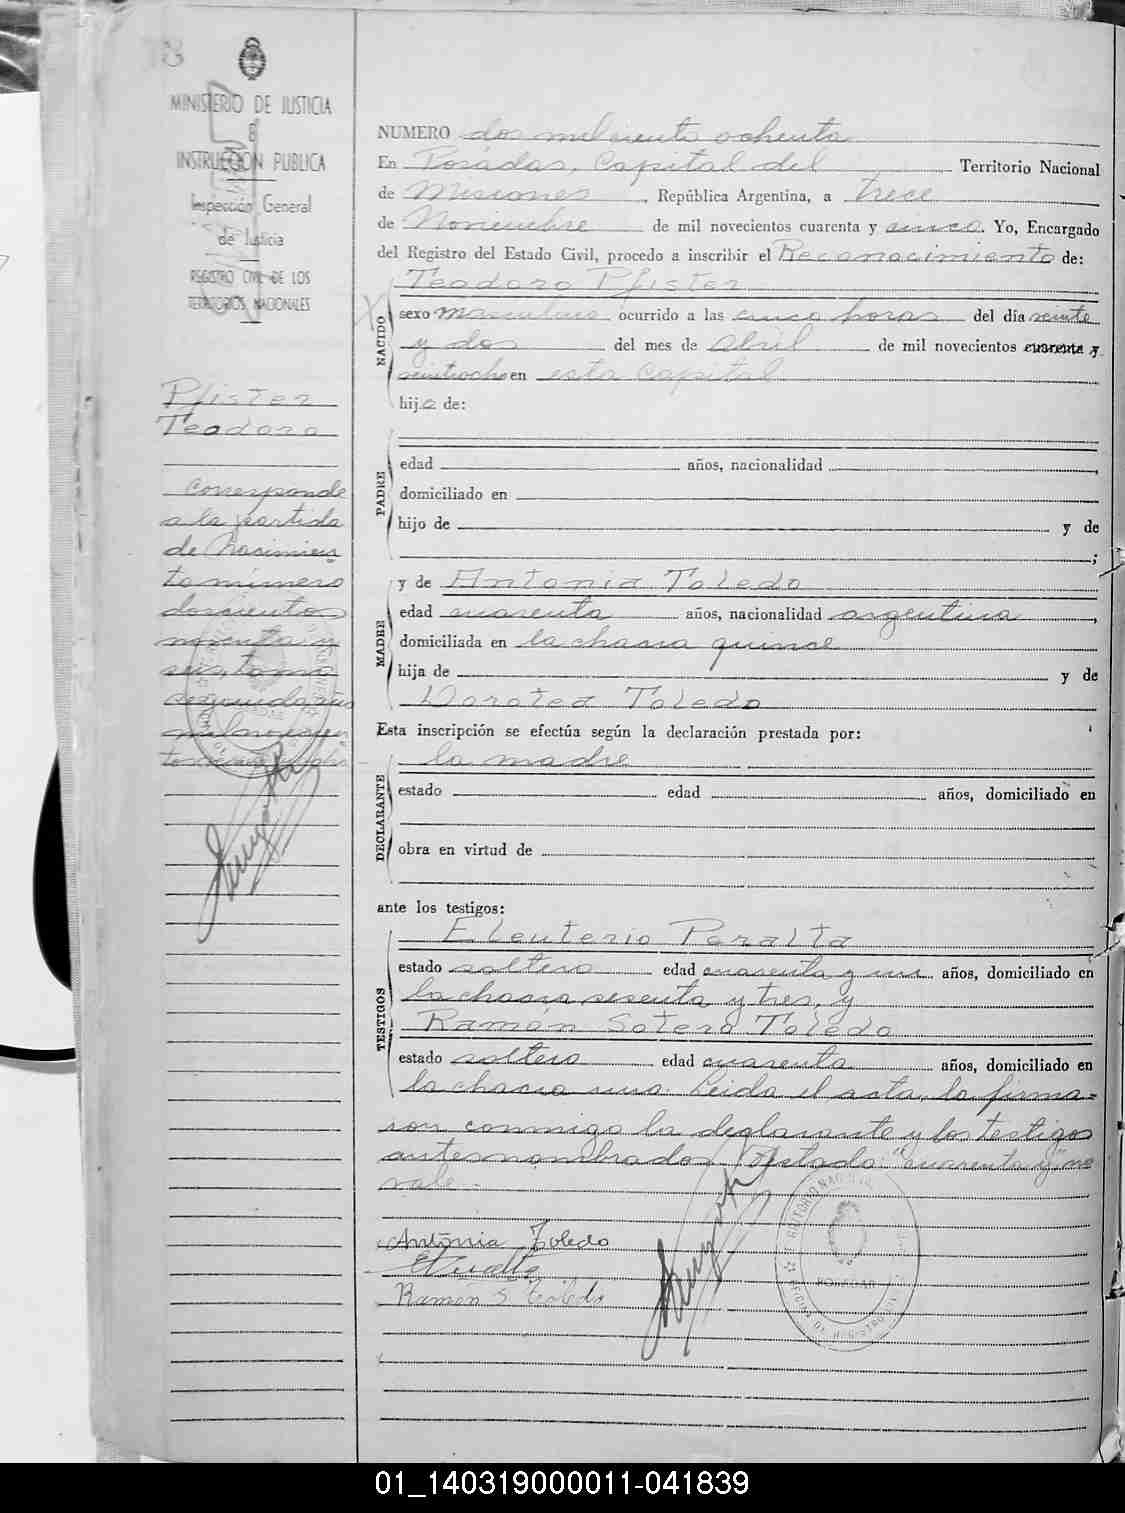 MINISTERIO DE JUSTICIA
E
INSTRUCCION PUBLICA
Inspección General
de Justicia
REGISTRO CIVIL DE LOS
TERRITORIOS NACIONALES
Pfister
Teodoro
Corresponde
a la partida
de Nacimien
to número
doscientos
noventa y
seis, tomo
segundo, año
mil novecien
NUMERO dos mil ciento ochenta
En Posadas, Capital del Territorio Nacional
de Misiones, República Argentina, a trece
de Noviembre de mil novecientos cuarenta y cinco. Yo, Encargado
del Registro del Estado Civil, procedo a inscribir el Reconocimiento de:
Teodoro Pfister
NACIDO
sexo masculino ocurrido a las cinco horas del día veinte
y dos del mes de abril de mil novecientos cuarenta y
veintiocho en esta Capital
hijo de:
PADRE
edad años, nacionalidad ,
domiciliado en
hijo de y de
;
MADRE
y de Antonia Toledo
edad cuarenta años, nacionalidad argentina,
domiciliada en la chacra quince
hija de y de
Dorotea Toledo
Esta inscripción se efectúa según la declaración prestada por:
la madre
DECLARANTE
estado edad años, domiciliado en
obra en virtud de
ante los testigos:
TESTIGOS
Eleuterio Peralta
estado soltero edad cuarenta y un años, domiciliado en
la chacra sesenta y tres, y
Ramón Sotero Toledo
estado soltero edad cuarenta años, domiciliado en
la chacra una. Leida el acta, la firma=
ron conmigo la declarante y los testigos
antes nombrados. Testado "cuarenta y" no
vale.
Antonia Toledo
Ramón S Toledo
POSADAS
01_140319000011-041839